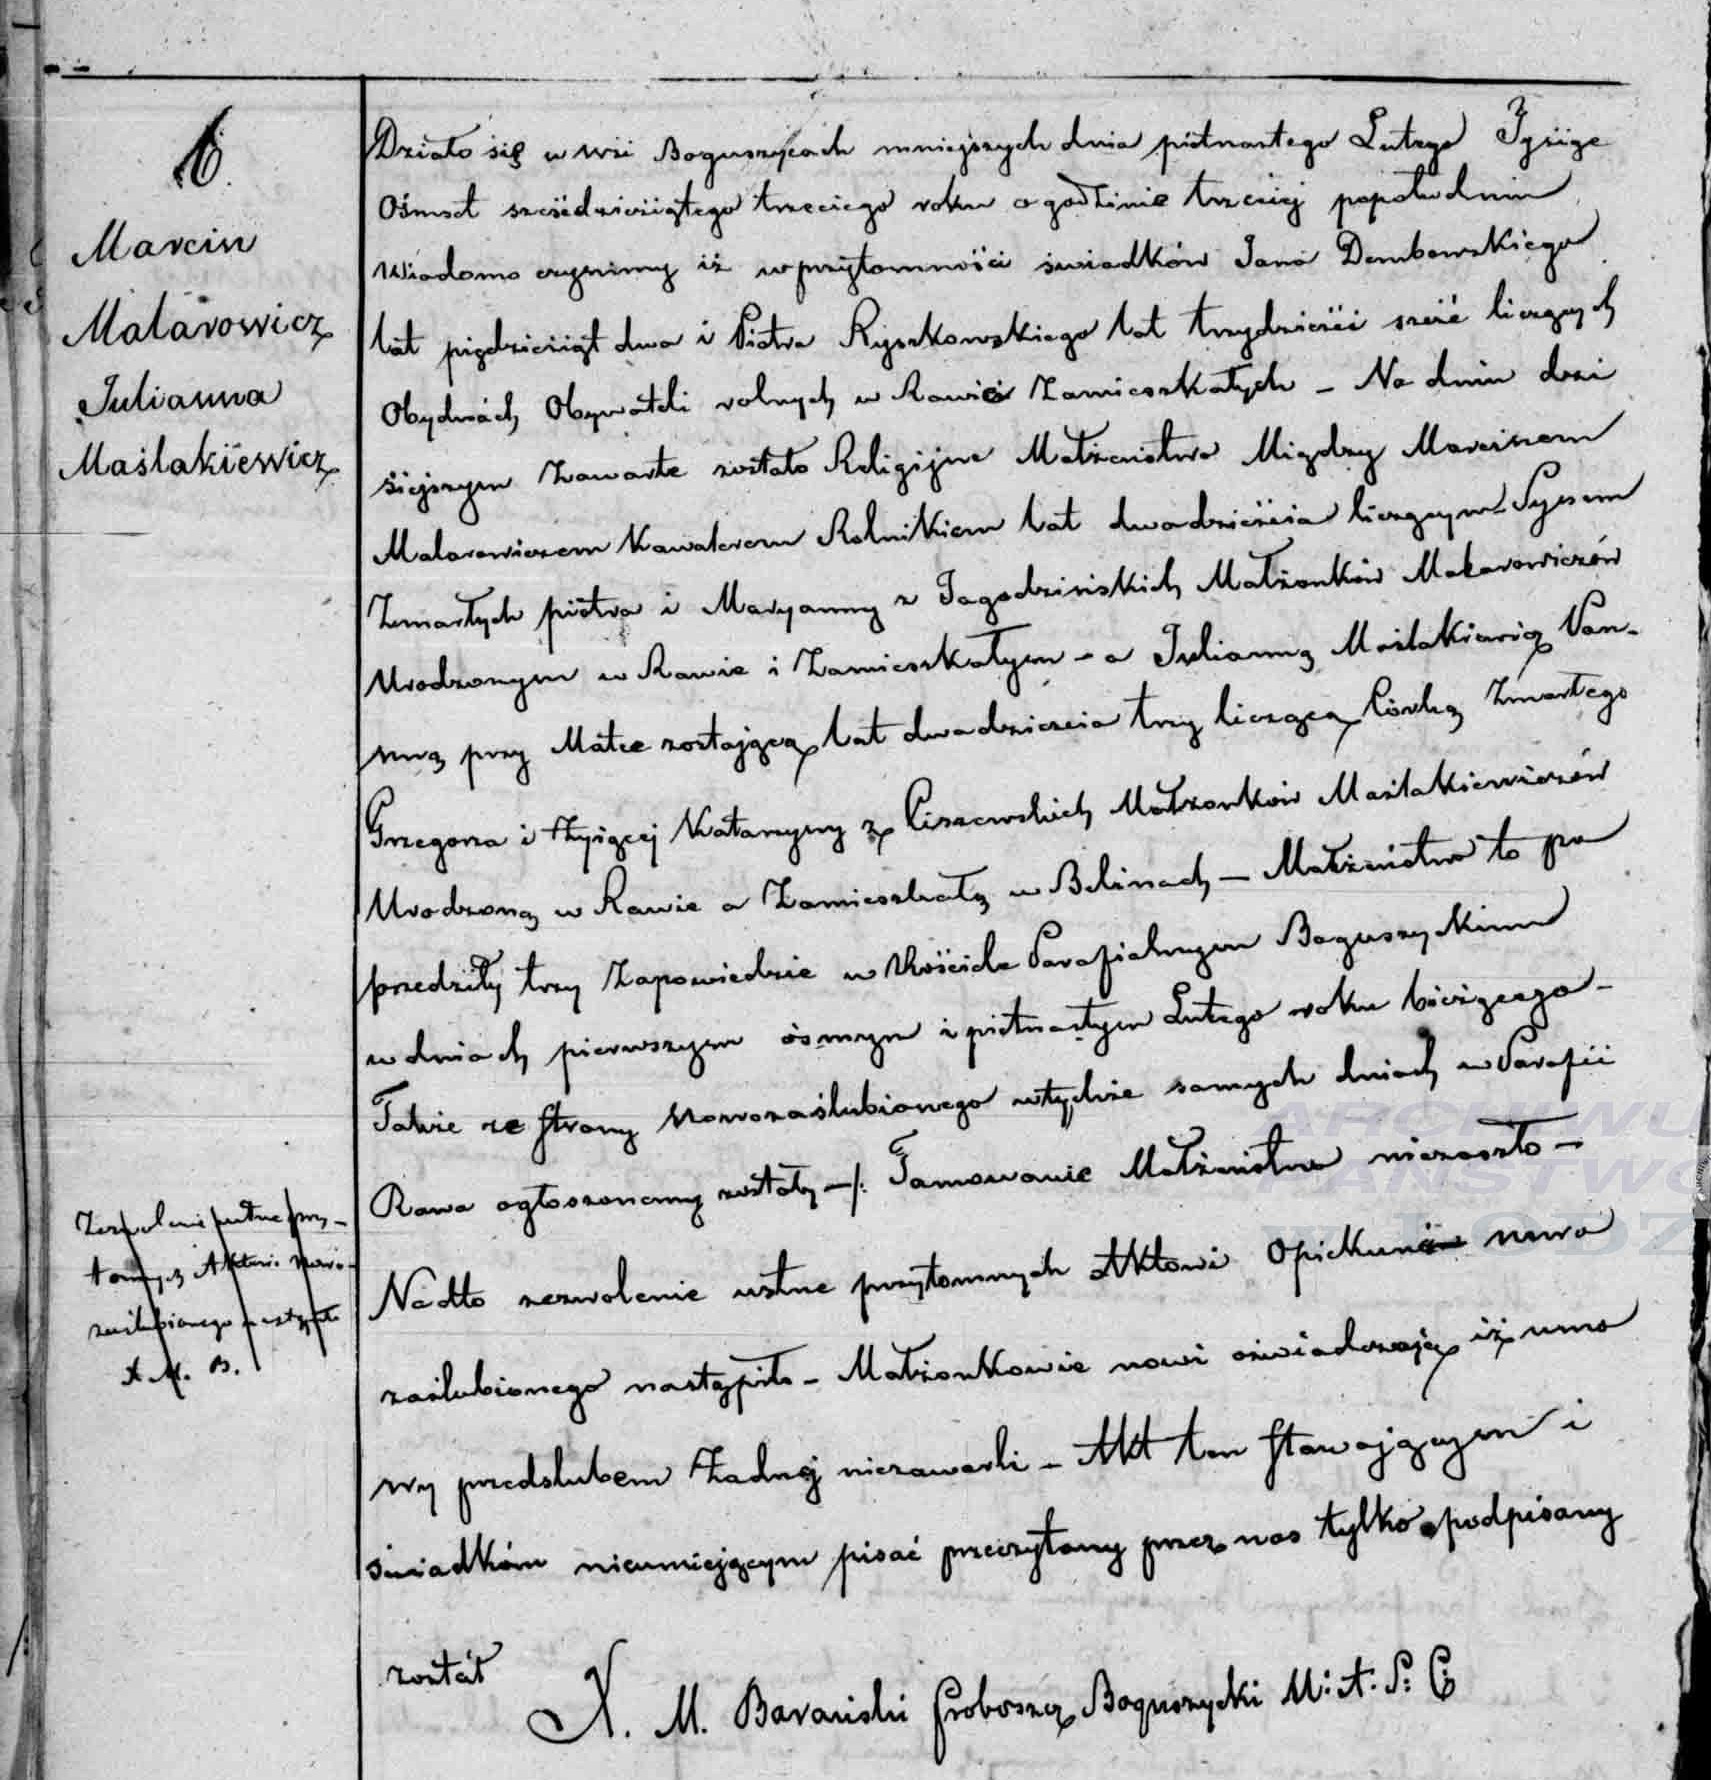 6.
Marcin
Malarowicz
Julianna
Maślakiewicz
Działo się w wsi Boguszycach mniejszych dnia piętnastego Lutego Tysiąc
Ośmset sześćdziesiątego trzeciego roku o godzinie trzeciej popołudniu
Wiadomo czynimy iż w przytomności świadków Jana Dembowskiego
lat pięćdziesiąt dwa i Piotra Ryszkowskiego lat trzydzieści sześć liczących
Obydwóch Obywateli rolnych w Rawie Zamieszkałych – Na dniu dzi
siejszym Zawarte zostało Religijne Małżeństwo Między Marcinem
Malarowiczem Kawalerem Rolnikiem lat dwadzieścia liczącym – Synem
Zmarłych piotra i Maryanny z Jagodzińskich Małżonków Malarowiczów
Urodzonym w Rawie i Zamieszkałym – a Julianną Maślakiewicz Pan-
ną przy Matce zostającą lat dwadzieścia trzy liczącą Córką Zmarłego
Grzegorza i Żyjącej Katarzyny z Ciszewskich Małżonków Maślakiewiczów
Urodzoną w Rawie a Zamieszkałą w Belinach – Małżeństwo to po
przedziły trzy Zapowiedzie w Kościele Parafialnym Boguszyckim
w dniach pierwszym ósmym i piętnastym Lutego roku bieżącego –
Także ze strony Nowozaślubionego w tychże samych dniach w Parafii
Rawa ogłoszonemy zostały –/: Tamowanie Małżeństwa niezaszło –
Nadto zezwolenie ustne przytomnych Aktowi Opiekunów nowo
zaślubionego nastąpiło – Małżonkowie nowi oświadczają iż umo
wy przedślubem Żadnej niezawarli – Akt ten stawającym i
świadkom nieumiejącym pisać przeczytany przez nas tylko podpisany
został
X. M. Barański Proboszcz Boguszycki M: A. S: C
Zezwolenie ustne przy-
tomnych Aktowi Nowo-
zaślubionego nastąpiło
X. M. B.
ARCHIWU
PAŃSTWO
w ŁODZ